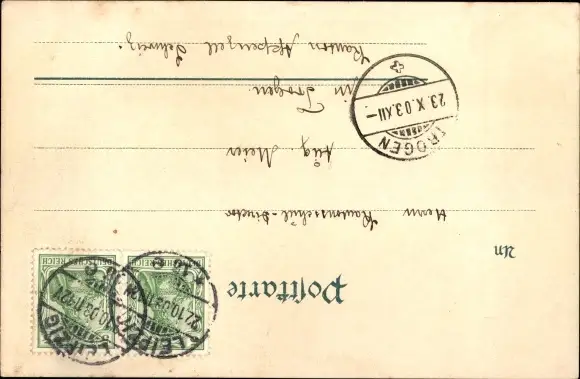 Postkarte
An
Herrn Kantonsschul-Director
Aug. Meier
in Trogen.
Kanton Appenzell Schweiz.
TROGEN
23.X.03.XII-
DEUTSCHES REICH
DEUTSCHES REICH
LEIPZIG
22.10.03
LEIPZIG